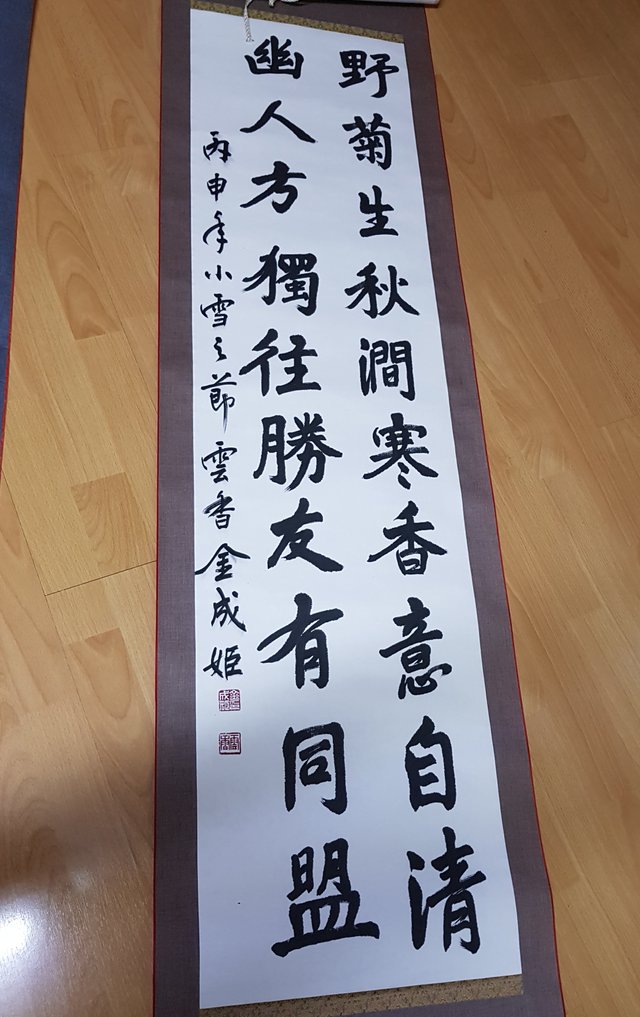 野菊生秋澗寒香意自清
幽人方獨往勝友有同盟
丙申年小雪之節雲香金成姬